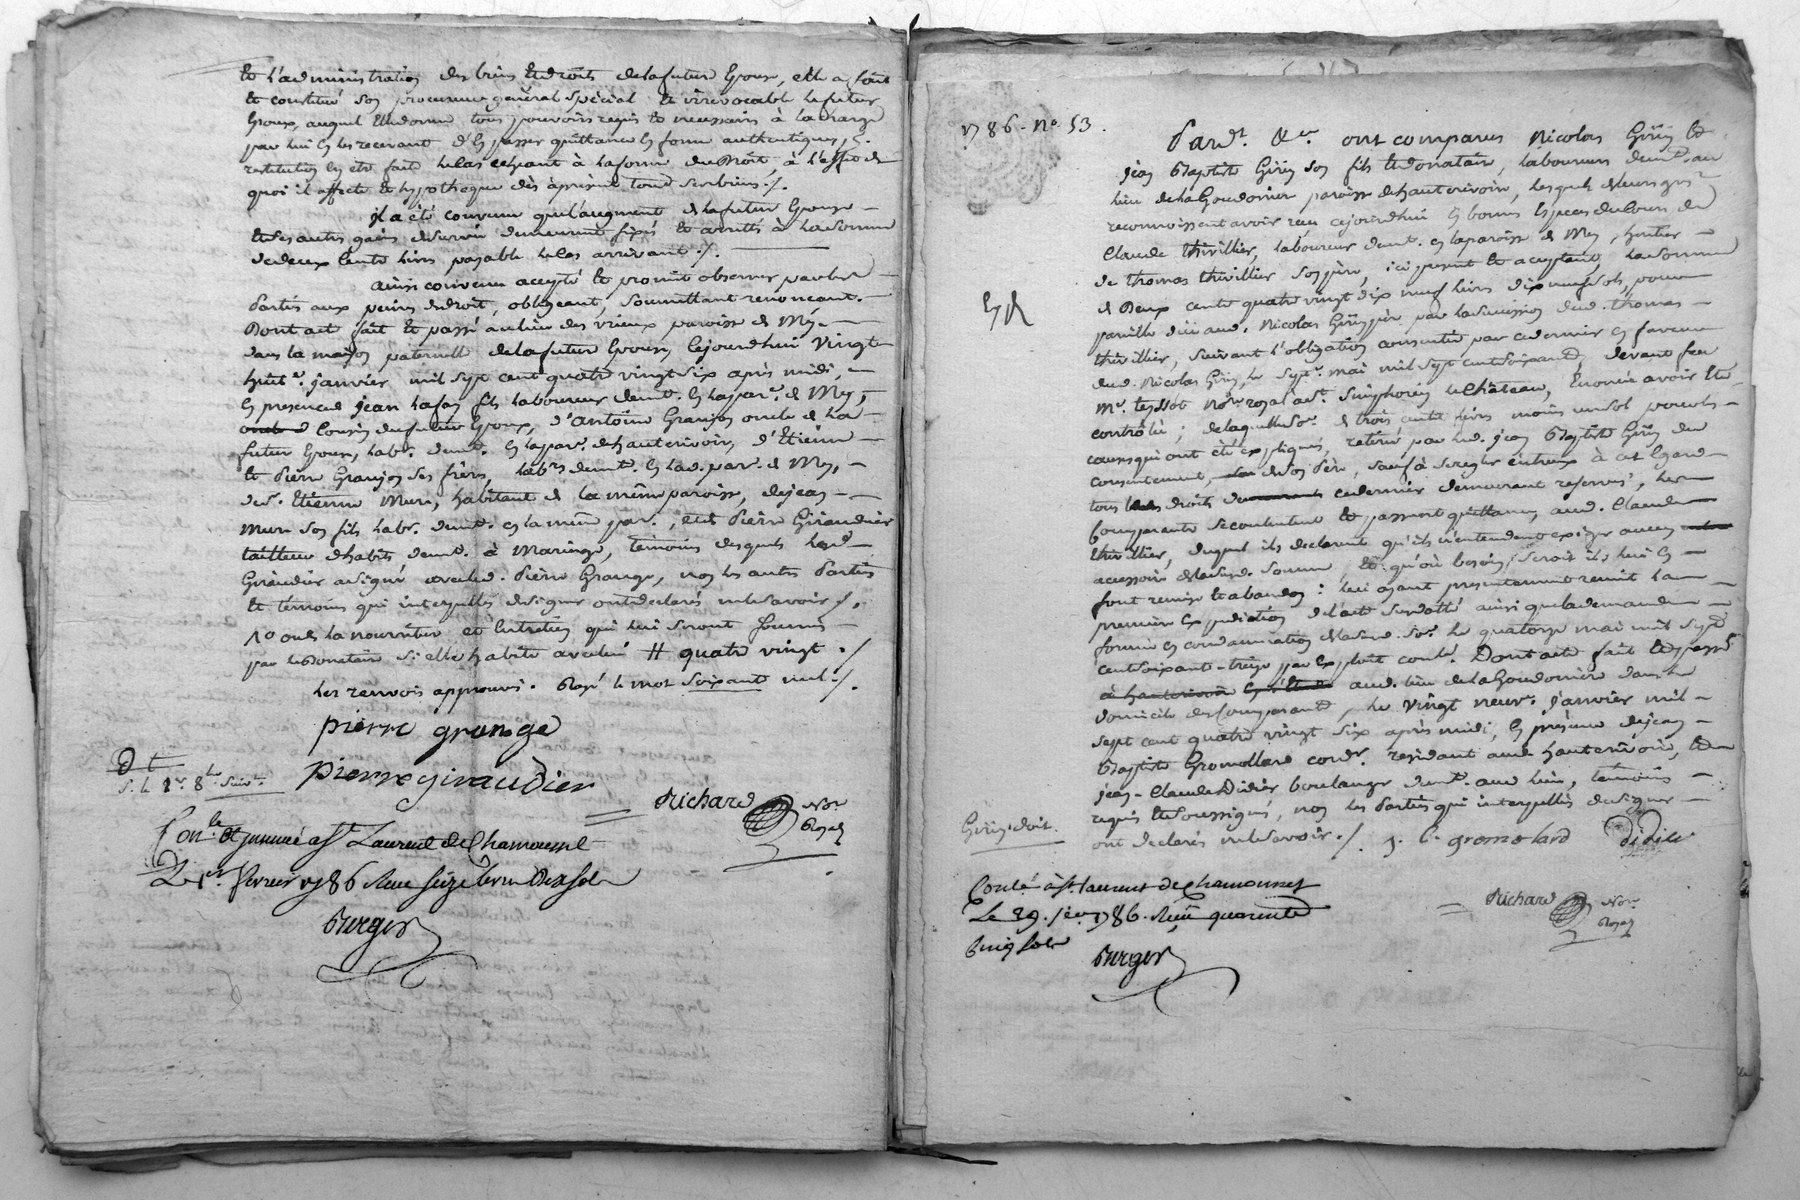 Et l'administration des biens et droits de la future Epouse, elle a fait
et constitué son procureur général spécial et irrévocable le futur
Epoux, auquel elle donne tous pouvoirs requis et necessaires à la charge
par lui en les recevant d'en passer quittances en forme authentiques,
restitution en être faite le cas echeant à la forme du Droit, à l'effet de
quoi il affecte et hypotheque dès à présent tous ses biens ./.
il a été convenu que l'augment de la future Epouse
et les autres gains de survie demeurent fixés et arrêtés à la somme
de deux cents livres payable le cas arrivant ./.
ainsi convenu accepté et promis observer par les
Parties aux peines de droit, obligeant, soumettant renonceant.
Dont acte fait et passé au lieu des vrieux paroisse de Méy
dans la maison paternelle de la future Epouse, cejourdhui vingt
huit e. janvier mil sept cent quatre vingt six après midi,
En presence de jean lafay fils laboureur demt. en la par. de Mey,
cousin du futur Epoux, d'antoine Granjon oncle de la
future Epouse, labr. demt. en la par. de hauterivoire, d'Etienne
et Pierre Granjon ses frères, labrs demt. en lad. par. de Mey,
de sr. Etienne Mure, habitant de la même paroisse, de jean
Mure son fils labr. demt. en la même par., et de Pierre Giraudier
tailleur d'habits demt. à Maringe, temoins desquels led.
Giraudier a signé avec led. Pierre Grange, non les autres Parties
et témoins qui interpellés de signer ont declarés ne le savoir ./.
1° outre la nourriture et entretien qui lui seront fournis
par le Donataire si elle habite avec lui # quatre vingt ./
les renvois approuvés. Rayé le mot soixante nul ./.
pierre grange
pierre giraudier
S. L. 2e. 8e. Suivt.
Richard Nore
Royal
Conlé et insinué à St Laurent de Chamousset
Le 1er. fevrier 1786 Reçu seize livres dix sols
Burger
1786. No. 53.
Pardt. &er ont comparus Nicolas Giry et
jean Baptiste Giry son fils et donataire, laboureurs demt. au
lieu de la Goudonière paroisse de hauterivoire, lesquels de leurs grés
reconnoissent avoir reçu cejourdhui en bonnes Especes du Cours de
Claude thivillier, laboureur demt. en la paroisse de Mey, heritier
de thomas thivillier son père, ici present et acceptant, la somme
de Deux cents quatre vingt dix neuf livres dix neuf sols, pour
pareille due aud. Nicolas Giry père par la succession dud. thomas
thivillier, suivant l'obligation consentie par ce dernier en faveur
dud. Nicolas Giry, le sept e. mai mil sept cent soixante, devant feu
Me. teyssot Nore royal à St. Simphorien le Château, Enoncée avoir été
contrôlé; de laquelle se. de trois cents livres moins un sol pour les
causes qui ont été expliquées, retirée par led. jean Baptiste Giry du
consentement de son Père, sauf à se regler entreux à cet égard
tous droits ce dernier demeurant reservés, les
Comparants se contentent et passent quittance aud. Claude
thivillier, duquel ils declarent qu'ils n'entendent exiger aucun
accessoire de ladite somme, et qu'où besoin seroit ils lui en
font remise et abandon: lui ayant presentement remit la
premiere Expedition de l'acte surdatté ainsi que la demande
formée en condamnation de lad. se. le quatorze mai mil sept
cent soixante-treize par exploit conlé. Dont acte fait et passé
aud. lieu de la Goudonière dans le
domicile des Comparants, le vingt neuve. janvier mil
sept cent quatre vingt six après midi, En présence de jean
Baptiste Gromollard cordr. residant aud. hauterivoire, et de
jean-Claude Didier boulanger demt. aud. lieu, témoins
requis et soussignés, non les Parties qui interpellés de signer
ont declarés ne le savoir ./.
j. b. gromolard didile
Giry doit.
Conlé à St. laurent de Chamousset
Le 29. jer. 1786. Reçu quarente
cinq sols
Burger
Richard Nore
Royal